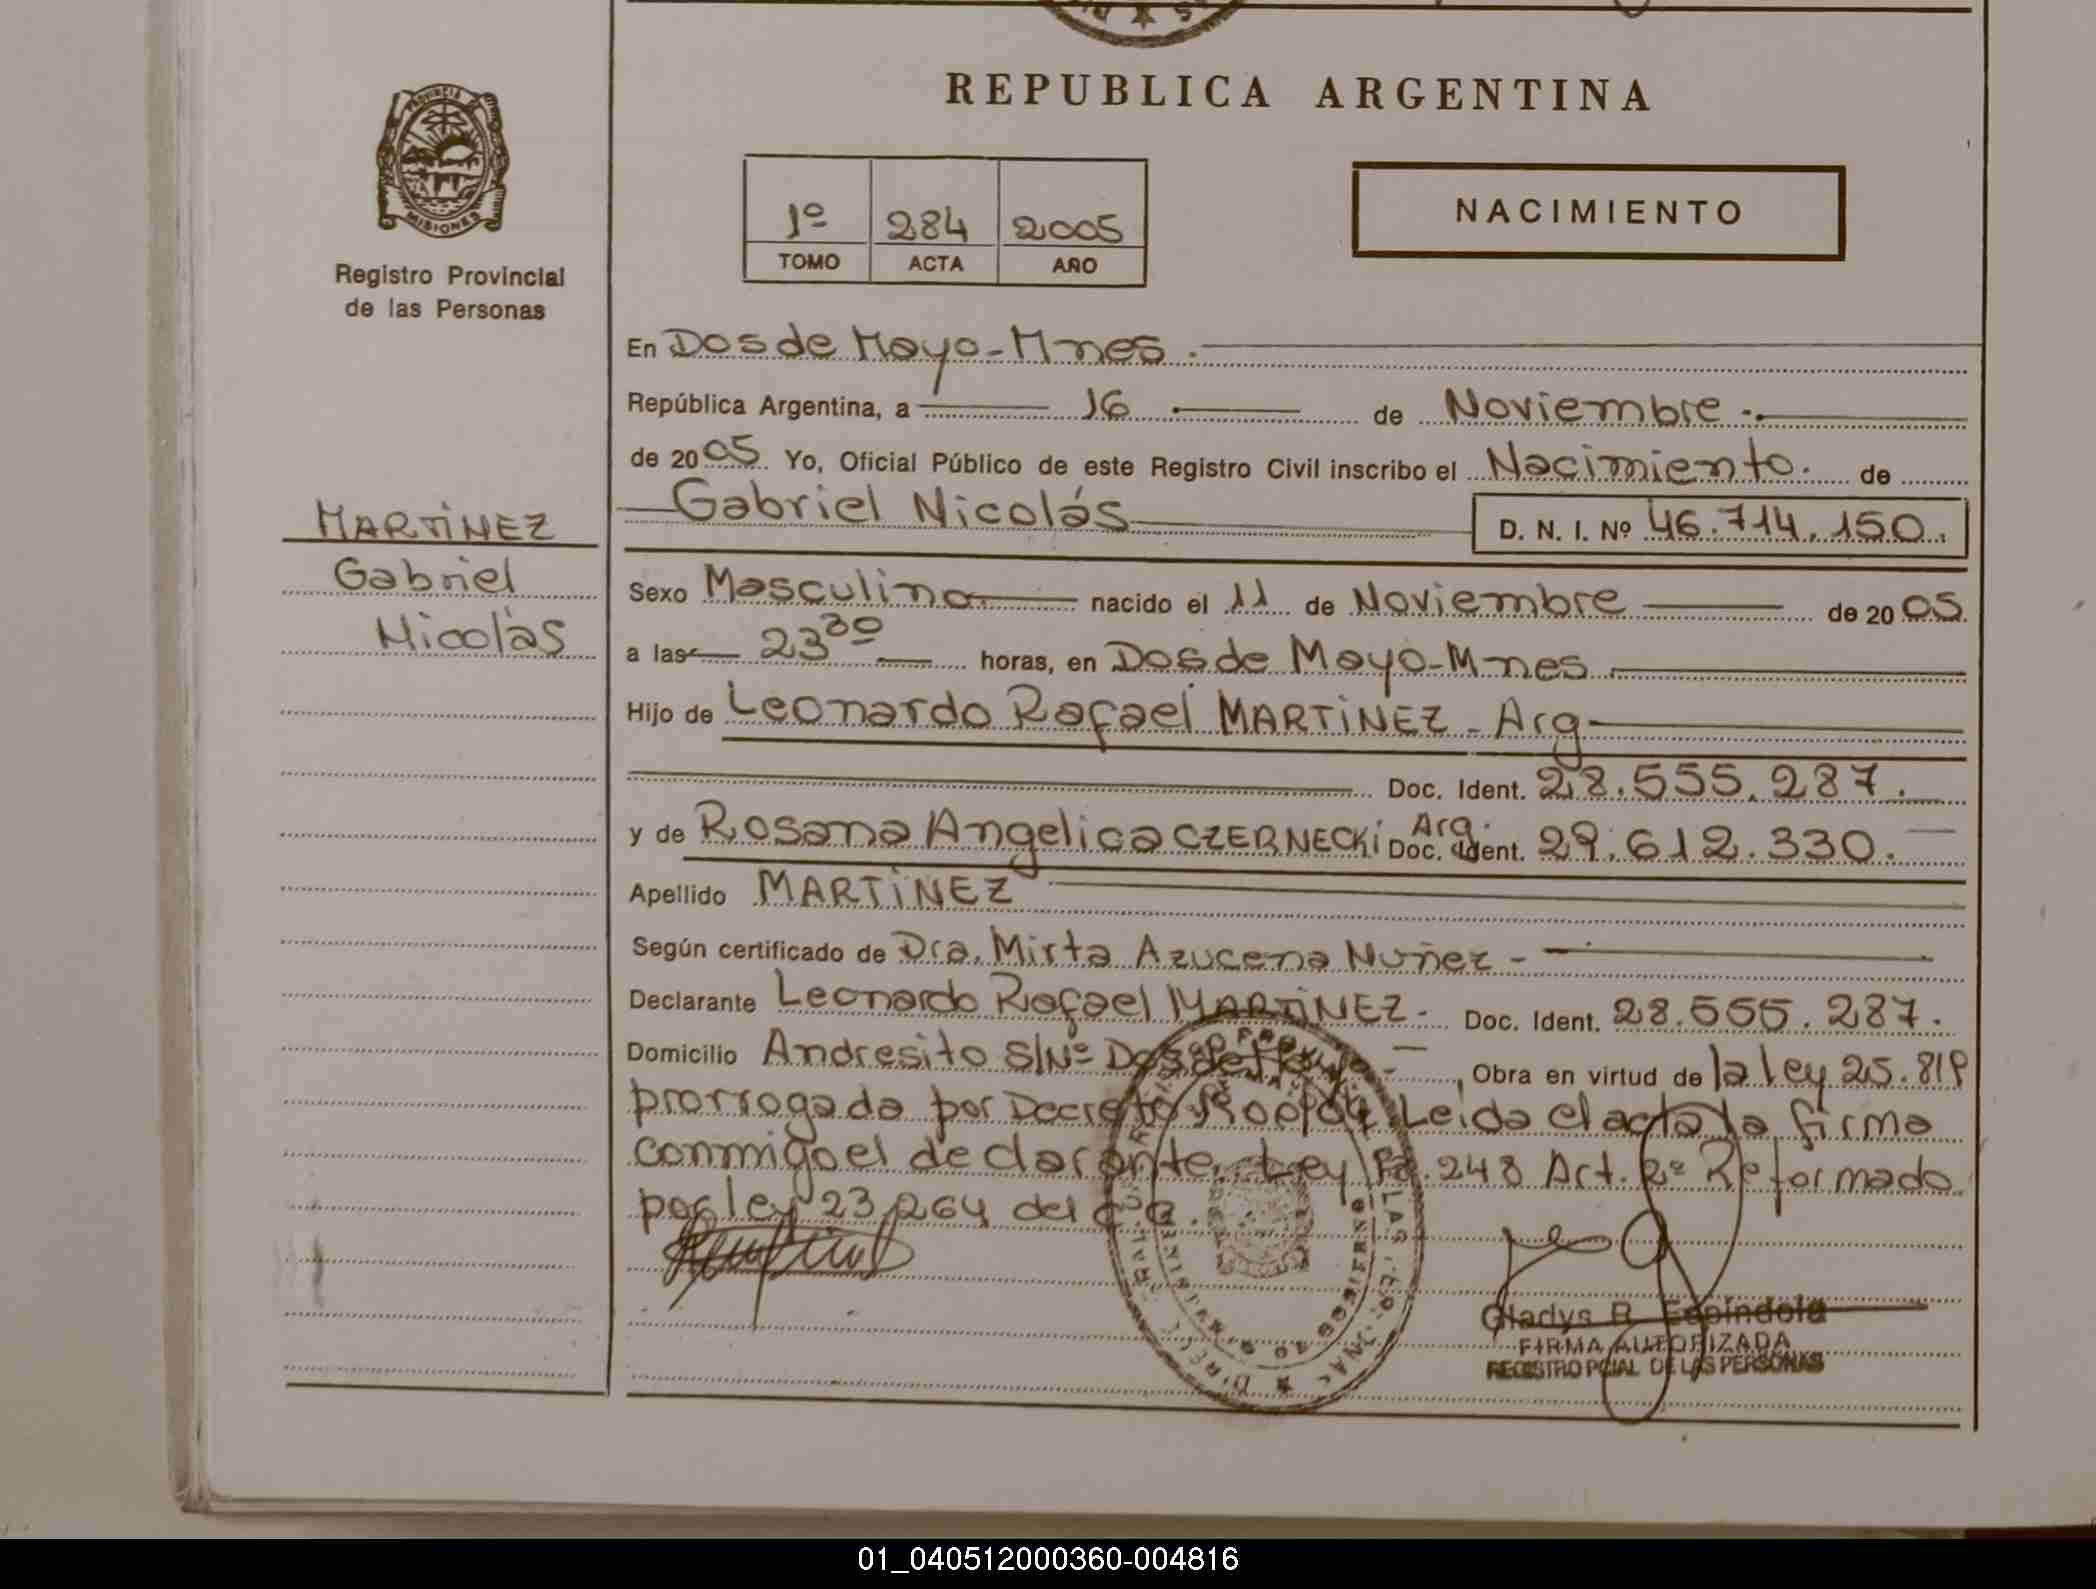 REPUBLICA ARGENTINA
PROVINCIA DE
MISIONES
Registro Provincial
de las Personas
1º 284 2005
TOMO ACTA AÑO
NACIMIENTO
En Dos de Mayo - Mnes.
República Argentina, a 16 de Noviembre
de 2005 Yo, Oficial Público de este Registro Civil inscribo el Nacimiento. de
Gabriel Nicolás D. N. I. Nº 46.714.150.
MARTiNEZ
Gabriel
Nicolás
Sexo Masculino nacido el 11 de Noviembre de 2005
a las 23 30 horas, en Dos de Mayo - Mnes
Hijo de Leonardo Rafael MARTiNEZ - Arg
Doc. Ident. 28.555.287.
y de Rosana Angelica CZERNECKi Arg. Doc. Ident. 29.612.330.
Apellido MARTiNEZ
Según certificado de Dra. Mirta Azucena Nuñez -
Declarante Leonardo Rafael MARTiNEZ - Doc. Ident. 28.555.287.
Domicilio Andresito S/Nº Dos de Mayo - , Obra en virtud de la ley 25.819
prorrogada por Decreto Leida el acta la firma
conmigo el declarante. Ley 18.248 Art. 2º Reformado
por ley 23.264 del
Gladys R. Espíndola
FIRMA AUTORIZADA
REGISTRO PCIAL DE LAS PERSONAS
01_040512000360-004816